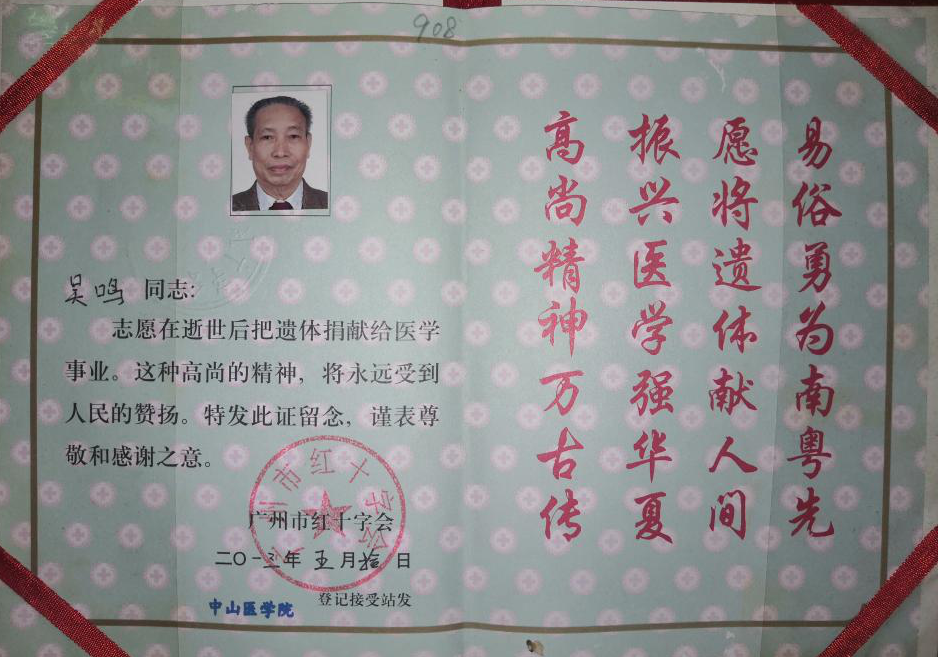 908
吴鸣 同志:
志愿在逝世后把遗体捐献给医学
事业。这种高尚的精神，将永远受到
人民的赞扬。特发此证留念，谨表尊
敬和感谢之意。
广州市红十字会
广州市红十字会
二〇一三年 五 月 拾 日
中山医学院 登记接受站发
易俗勇为南粤先
愿将遗体献人间
振兴医学强华夏
高尚精神万古传